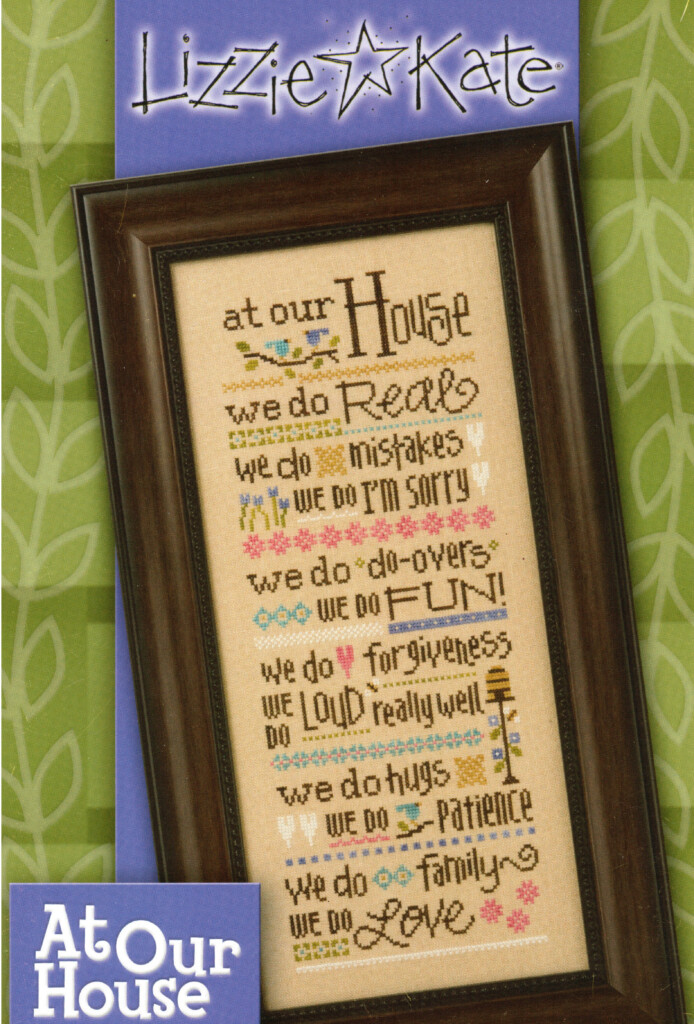 Lizzie Kate
at our House
we do Real
we do mistakes
WE DO I'm SORRY
we do do-overs
WE DO FUN!
we do forgiveness
WE DO LOUD really well
we do hugs
WE DO Patience
we do family
WE DO Love
At Our
House